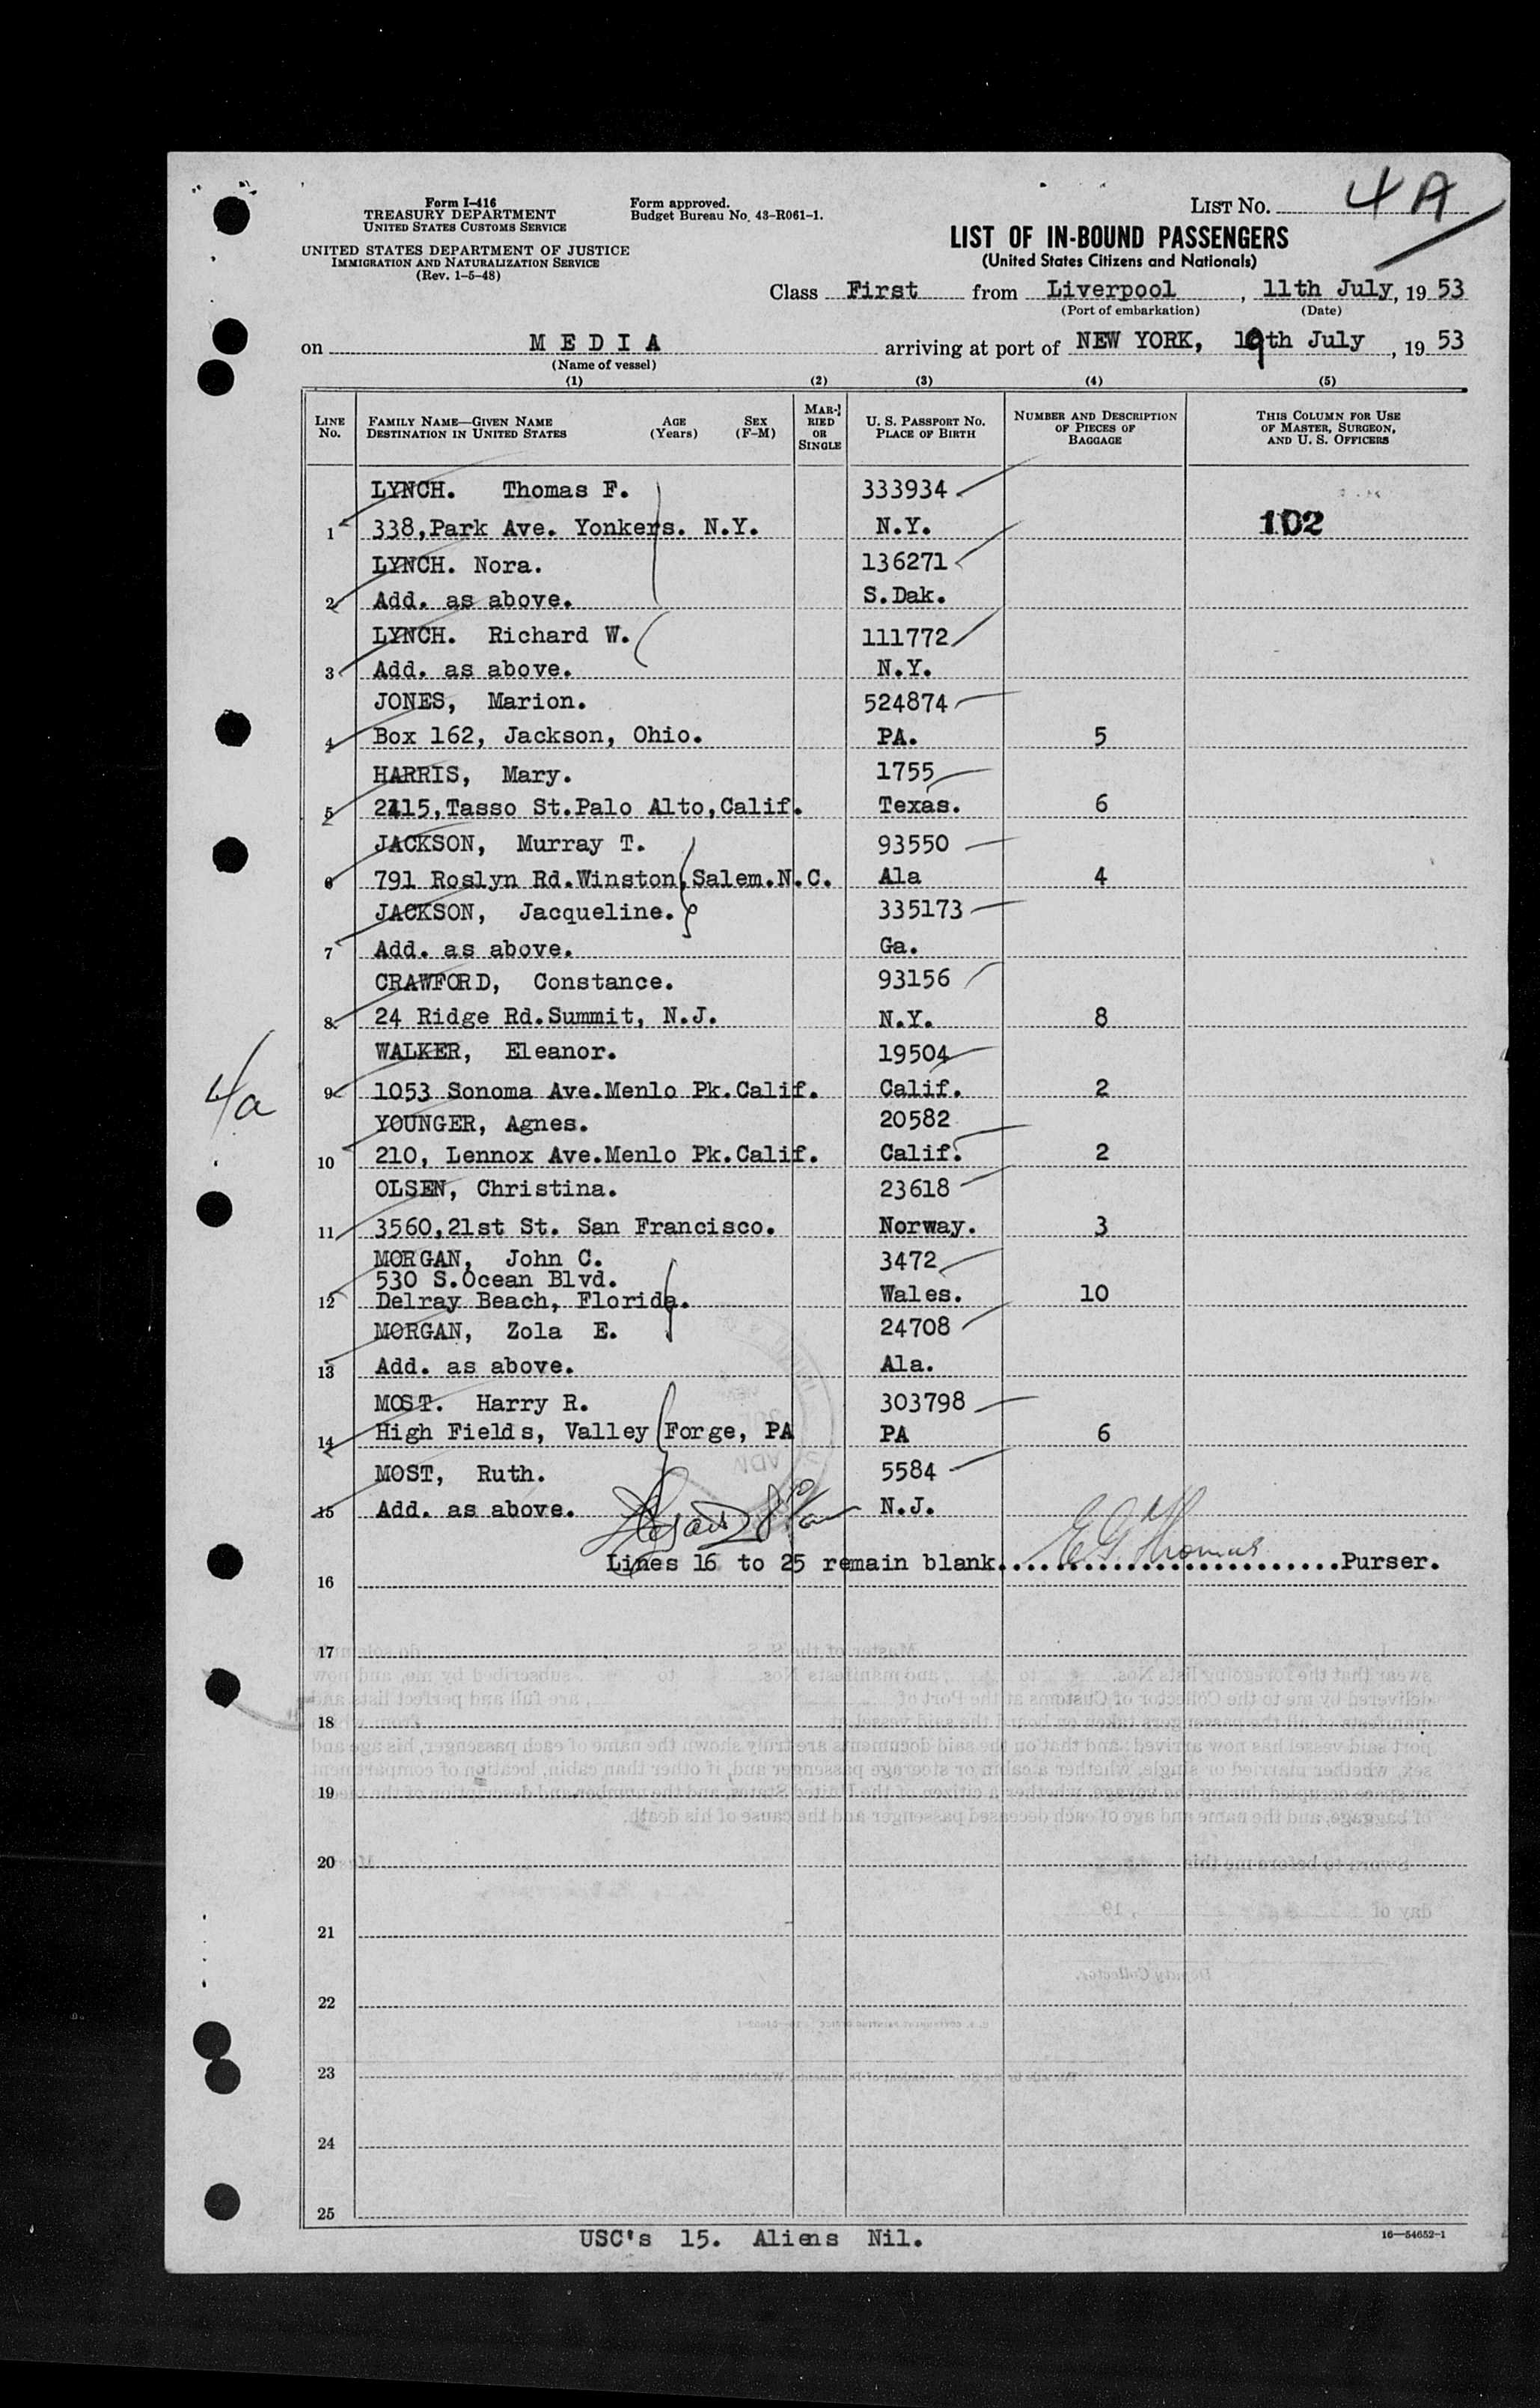 LIST NO. 4A
Form I-416
TREASURY DEPARTMENT
UNITED STATES CUSTOMS SERVICE
Form approved.
Budget Bureau No. 43-R061-1.
UNITED STATES DEPARTMENT OF JUSTICE
IMMIGRATION AND NATURALIZATION SERVICE
(Rev. 1-5-48)
LIST OF IN-BOUND PASSENGERS
(United States Citizens and Nationals)
Class First from Liverpool, 11th July, 19 53
(Port of embarkation) (Date)
on M E D I A arriving at port of NEW YORK, 19th July, 19 53
(Name of vessel)
(1) (2) (3) (4) (5)
LINE NO. FAMILY NAME—GIVEN NAME DESTINATION IN UNITED STATES AGE (Years) SEX (F-M) MARRIED OR SINGLE U. S. PASSPORT NO. PLACE OF BIRTH NUMBER AND DESCRIPTION OF PIECES OF BAGGAGE THIS COLUMN FOR USE OF MASTER, SURGEON, AND U. S. OFFICERS
LYNCH. Thomas F. 333934
1 338,Park Ave. Yonkers. N.Y. N.Y. 102
LYNCH. Nora. 136271
2 Add. as above. S.Dak.
LYNCH. Richard W. 111772
3 Add. as above. N.Y.
JONES, Marion. 524874
4 Box 162, Jackson, Ohio. PA. 5
HARRIS, Mary. 1755
5 2115,Tasso St.Palo Alto,Calif. Texas. 6
JACKSON, Murray T. 93550
6 791 Roslyn Rd.Winston,Salem.N.C. Ala 4
JACKSON, Jacqueline. 335173
7 Add. as above. Ga.
CRAWFORD, Constance. 93156
8 24 Ridge Rd.Summit, N.J. N.Y. 8
WALKER, Eleanor. 19504
4a
9 1053 Sonoma Ave.Menlo Pk.Calif. Calif. 2
YOUNGER, Agnes. 20582
10 210, Lennox Ave.Menlo Pk.Calif. Calif. 2
OLSEN, Christina. 23618
11 3560,21st St. San Francisco. Norway. 3
MORGAN, John C. 3472
530 S.Ocean Blvd.
12 Delray Beach, Florida. Wales. 10
MORGAN, Zola E. 24708
13 Add. as above. Ala.
MOST. Harry R. 303798
14 High Fields, Valley Forge, PA PA 6
MOST, Ruth. 5584
15 Add. as above. N.J.
Lines 16 to 25 remain blank. E G Thomas Purser.
16
17
18
19
20
21
22
23
24
25
USC's 15. Aliens Nil.
16—54652-1